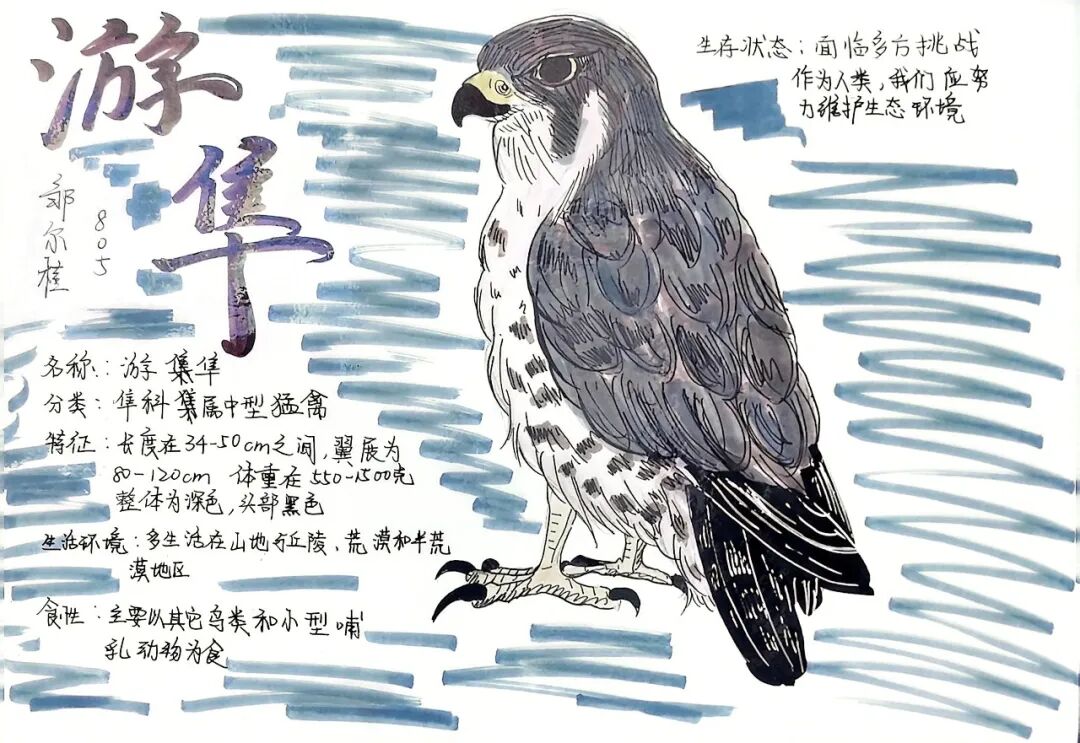 游隼
邹尔桂
805
名称：游隼
分类：隼科隼属中型猛禽
特征：长度在34-50cm之间，翼展为
80-120cm 体重在550-1500克
整体为深色，头部黑色
生活环境：多生活在山地与丘陵、荒漠和半荒
漠地区
食性：主要以其它鸟类和小型哺
乳动物为食
生存状态：面临多方挑战
作为人类，我们应努
力维护生态环境